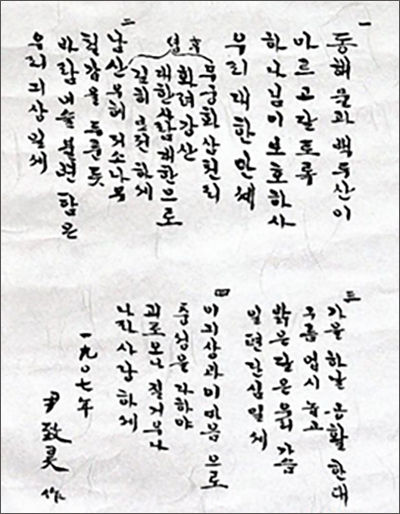 一
동해물과백두산이
마르고달토록
하나님이보호하사
우리대한만세
후렴
무궁화삼천리
화려강산
대한사람대한으로
길히보전하세
二
남산우헤저소나무
철갑을두른듯
바람이슬불변함은
우리긔상일세
三
가을하날공활한대
구름업시높고
밝은달은우리가슴
일편단심일세
四
이긔상과이마음으로
충성을다하야
괴로오나질거우나
나라사랑하세
一九〇七年
尹致昊 作